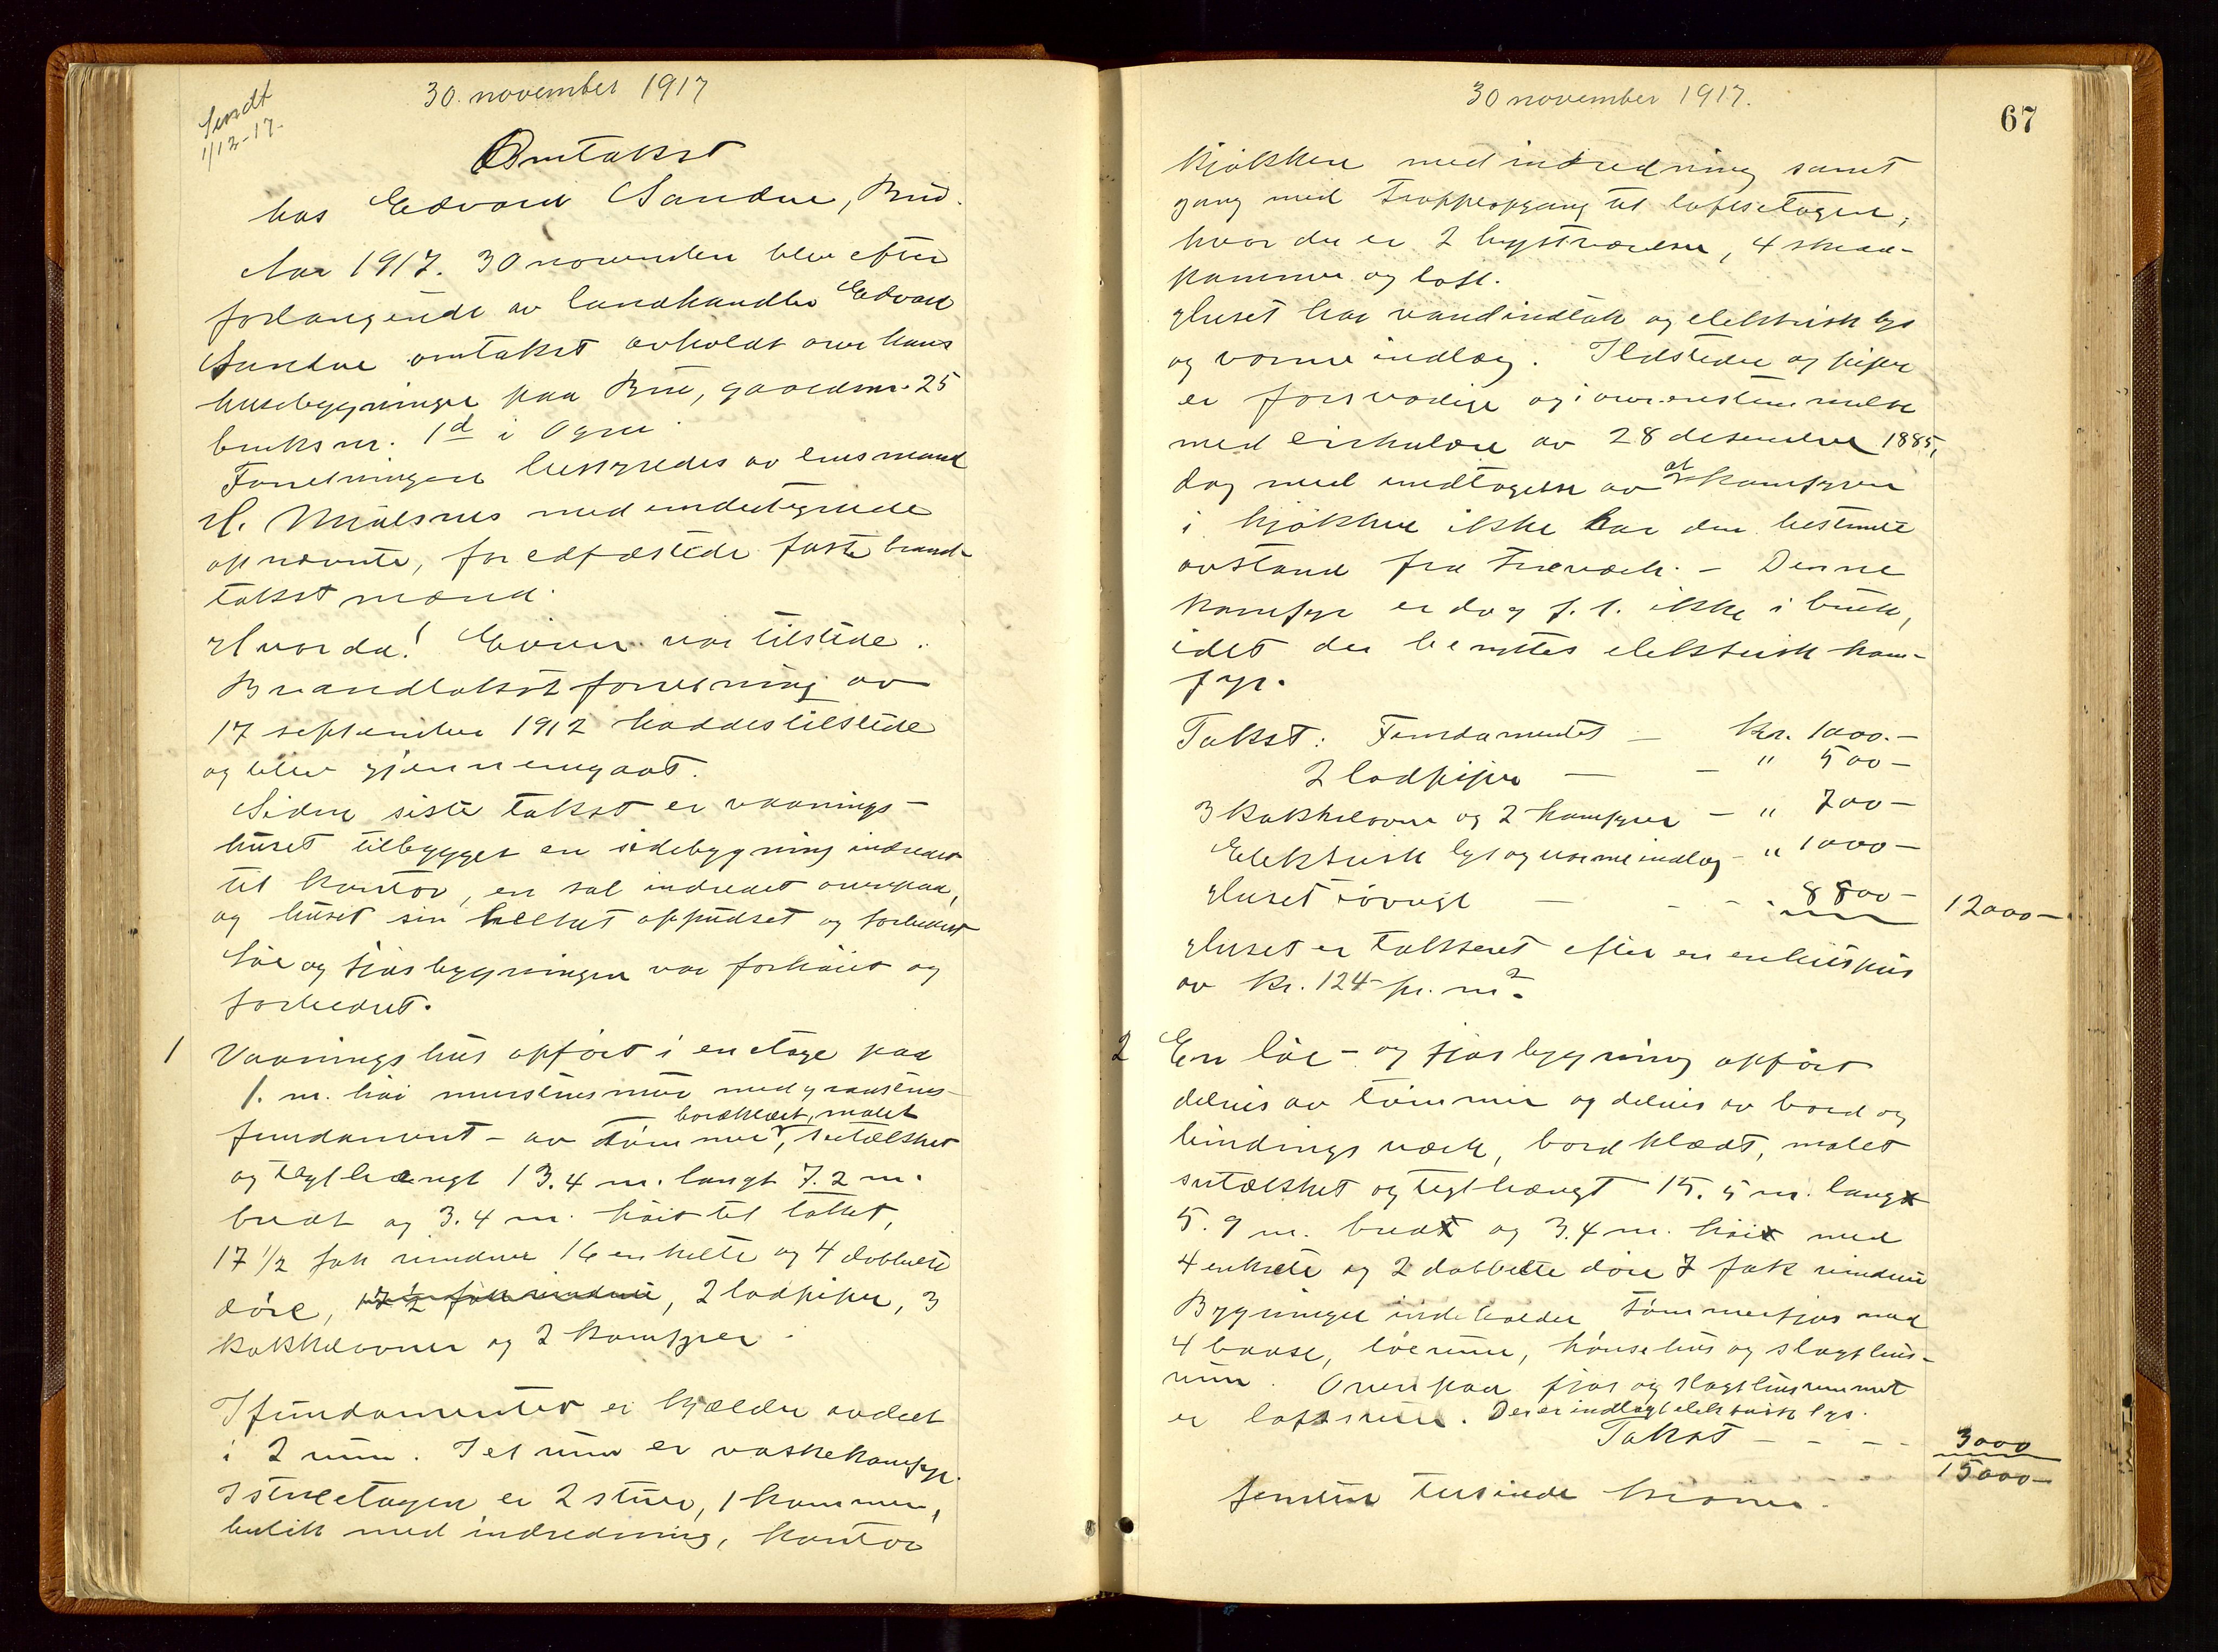 Sendt
1/12-17.
30. november 1917
Omtakst
hos Edvard Sandve, Bru.
Aar 1917. 30 november blev efter
forlangende av landhandler Edvard
Sandve omtakst avholdt over hans
husebygninger paa Bru, gaardsnr. 25
bruksnr. 1d i Ogne.
Forretningen bestyredes av lensmand
H. Mjølsnes med undertegnede
opnævnte, foredfæstede faste brand-
takstmænd.
Hvorda! Eieren var tilstede.
Brandtakstforretning av
17 september 1912 haddes tilstede
og blev gjennemgaat.
Siden siste takst er vaanings-
huset tilbygget en sidebygning indredet
til kontor, en sal indredet ovenpaa,
og huset sin helhet oppudset og forbedret
Løe og fjøsbygningen var forhøiet og
forbedret.
1 Vaaningshus opført i en etage paa
1. m. høi murstensmur med graastens-
fundament - av tømmer, bordklædt, malet sutælsket
og teglhængt 13.4 m. langt 7.2 m.
bredt og 3.4 m. høit til taket,
17 1/2 fak vinduer 16 enkelte og 4 dobbelte
døre, 17 1/2 fak vinduer, 2 ladpiper, 3
kakkelovner og 2 komfyrer.
I fundamentet er kjælder avdelt
i 2 rum. I et rum er vaskekomfyr.
I stueetagen er 2 stuer, 1 kammer,
butik med indredning, kontor
30 november 1917.
67
kjøkken med indredning samt
gang med trappeopgang til loftsetagen,
hvor der er 2 kvistværelser, 4 skraa-
kammer og loft.
Huset har vandindtak og elektrisk lys
og varme indlæg. Ildsteder og piper
er forsvarlige og i overenstemmelse
med cirkulære av 28 desember 1885,
dog med undtagelse av at komfyren
i kjøkken ikke har den bestemte
avstand fra træværk. - Denne
komfyr er dog f. t. ikke i bruk,
idet der benyttes elektrisk kom-
fyr.
Takst: Fundamentet - Kr. 1000.-
2 ladpiper - - " 500 -
3 kakkelovner og 2 komfyrer - " 700 -
Elektrisk lys og varmeindlæg - " 1000 -
Huset iøvrigt - - - 8800 - 12000 -
Huset er taksert efter en enhetspris
av kr. 124 - pr. m2.
2 En løe- og fjøsbygning opført
delvis av tømmer og delvis av bord og
bindingsværk, bordklædt, malet
sutælsket og teglhængt 15.5 m. lang
5.9 m. bred og 3.4 m. høi med
4 enkelte og 2 dobbelte døre 7 fak vinduer
Bygningen indeholder tømmerfjøs med
4 baase, løerum, hønsehus og slagthus-
rum. Ovenpaa fjøs og slagthusrummet
er loftsrum. Der er indlagt elektrisk lys.
Takst - - - - 3000
15000 -
femten tusinde kroner.